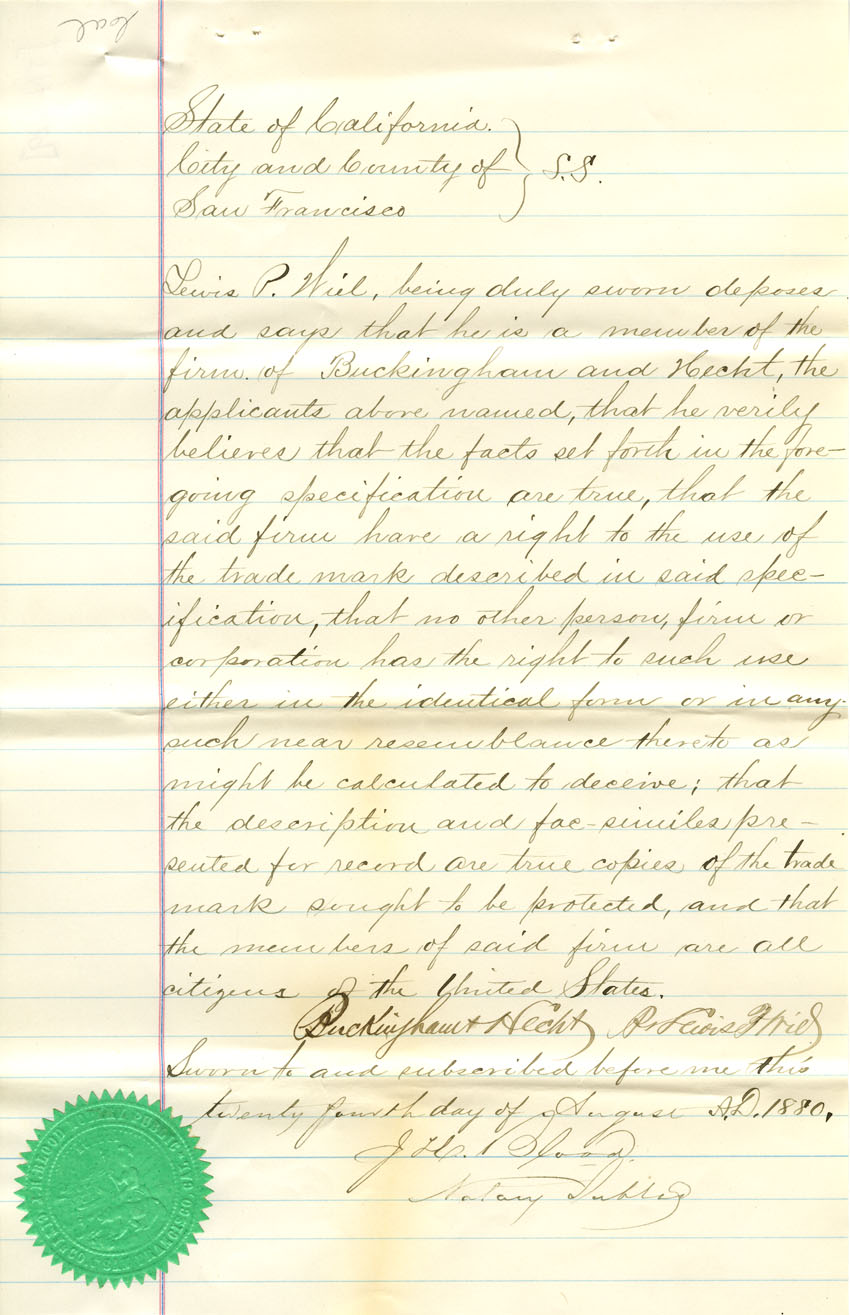 State of California.
City and County of } S.S.
San Francisco
Lewis P. Wiel, being duly sworn deposes
and says that he is a member of the
firm. of Buckingham and Hecht, the
applicants above named, that he verily
believes that the facts set forth in the fore-
going specification are true, that the
said firm have a right to the use of
the trade mark described in said spec-
ification, that no other person, firm or
corporation has the right to such use
either in the identical form or in any
such near resemblance thereto as
might be calculated to deceive; that
the description and fac-similes pre-
sented for record are true copies of the trade
mark sought to be protected, and that
the members of said firm are all
citizens of the United States.
Buckingham & Hecht Lewis P Wiel
Sworn to and subscribed before me this
twenty fourth day of August A.D. 1880.
J. H. Blood
Notary Public